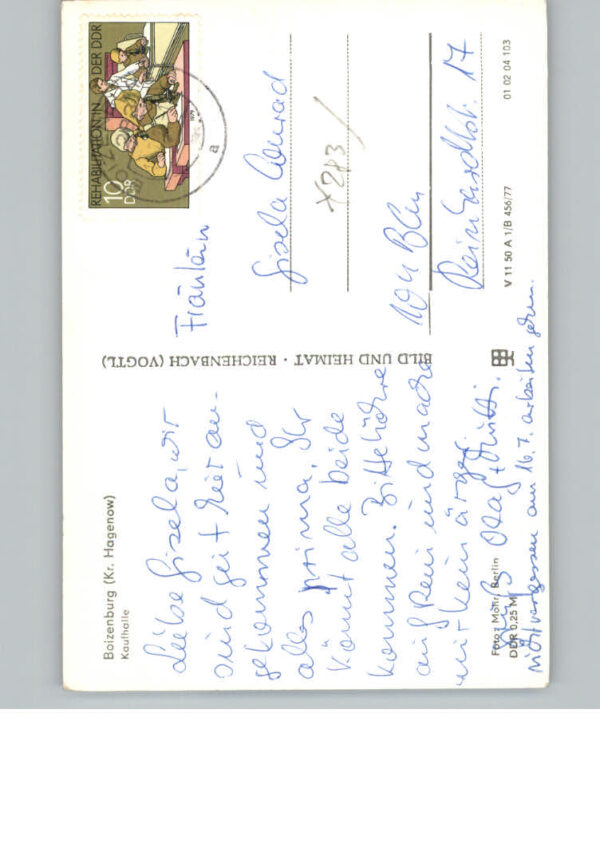 Boizenburg (Kr. Hagenow)
Kaufhalle
Liebe Gisela, wir
sind gut hier an-
gekommen und
alles prima. Ihr
könnt alle beide
kommen. Bitte höre
auf Reni und mache
mit kein ärger.
Gruß Olaf + Mutti.
Nicht vergessen am 16.7. arbeiten gehen.
Foto: Mohr, Berlin
DDR 0,25 M
BILD UND HEIMAT · REICHENBACH (VOGTL)
REHABILITATION IN DER DDR
10
DDR
a
Fräulein
Gisela Conrad
X283/
104 Bln
Reinhardtstr. 17
V 11 50 A 1/B 456/77
01 02 04 103